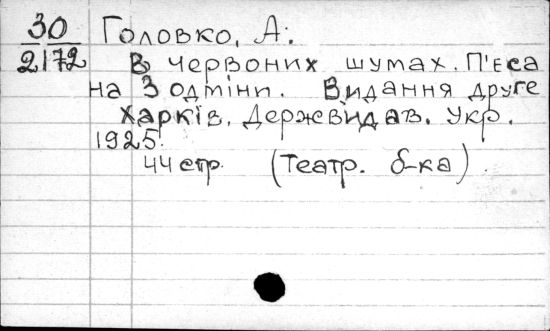 30 Головко, А.
2172 В червоних шумах. П'єса
на 3 одміни. Видання друге
Харків. Держвидав. Укр.
1925.
44 стр. (Театр. б-ка)